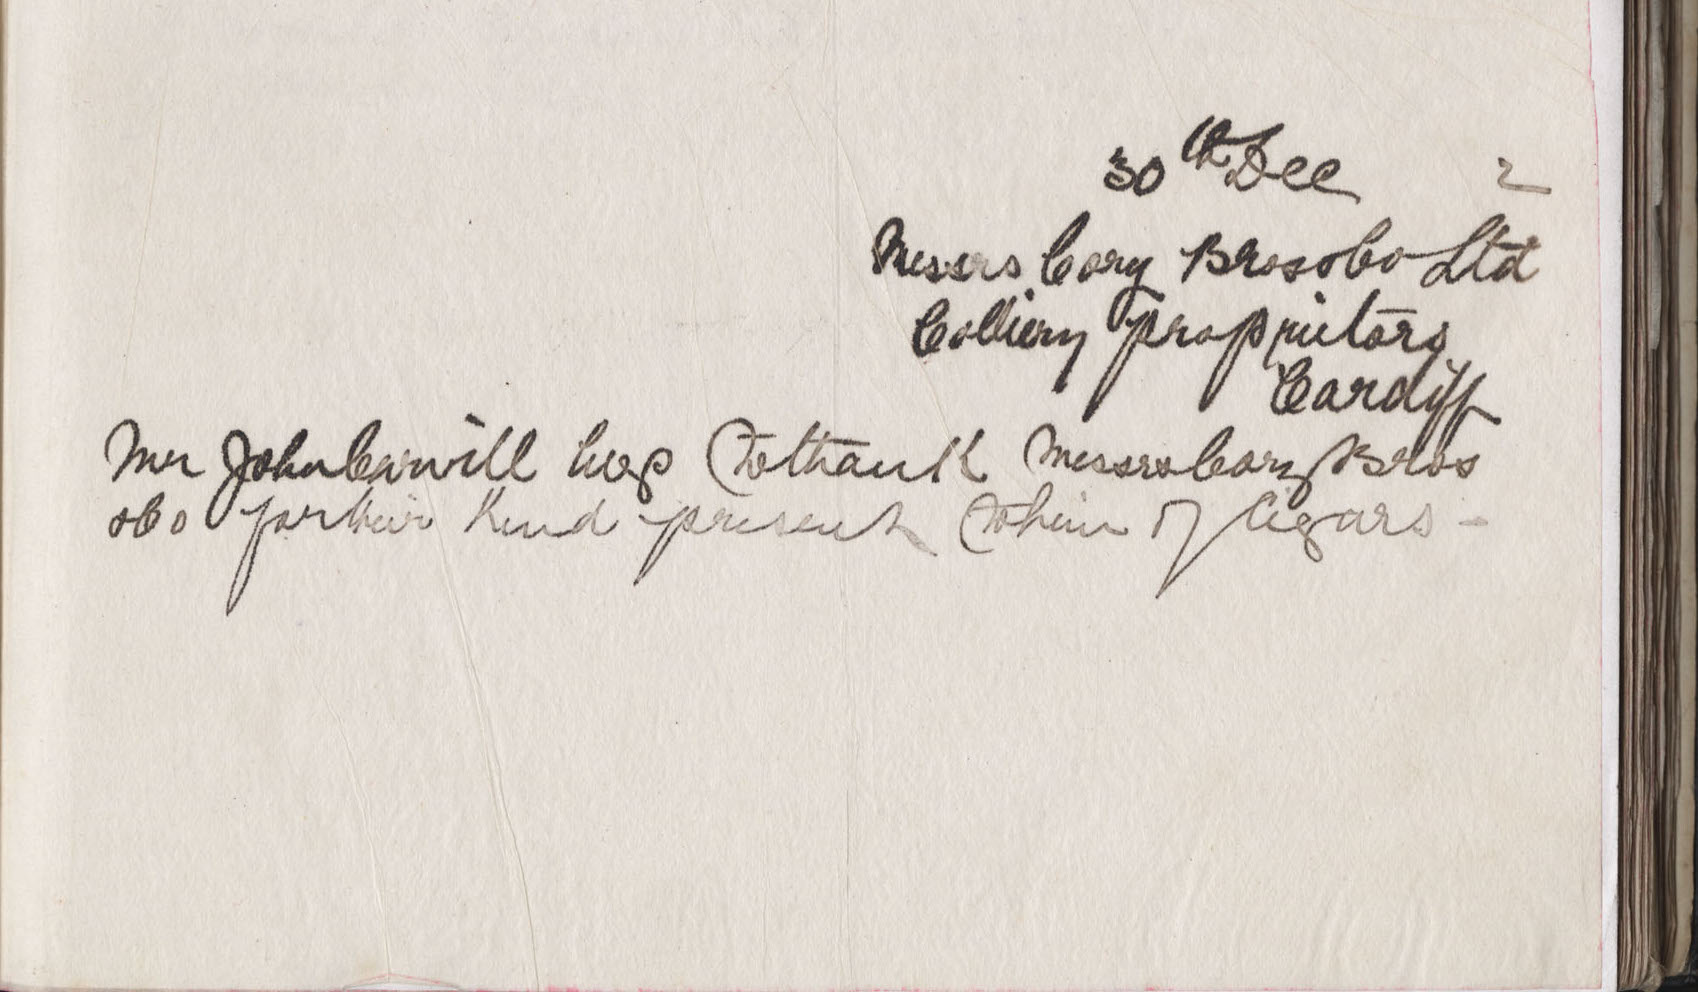 30th Dec 2
Messrs Cory Bros & Co Ltd
Colliery proprietors
Cardiff
Mr John Carvill begs to thank Messrs Cory Bros
& Co for their kind present to him of Cigars -